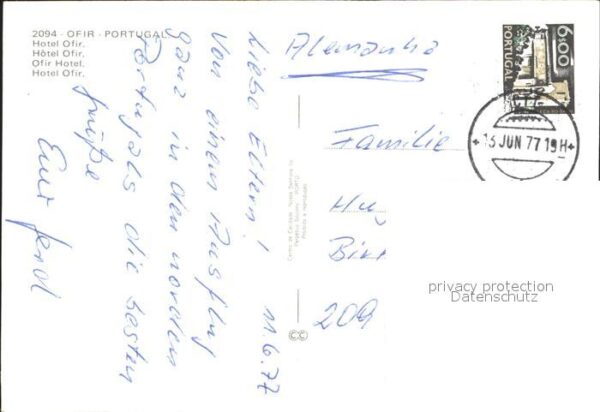 2094 - OFIR - PORTUGAL
Hotel Ofir.
Hôtel Ofir.
Ofir Hotel.
Hotel Ofir.
11.6.77
Liebe Eltern!
Von einem Ausflug
ganz in den norden
Portugals die besten
Grüße
Euer
Alemanha
Familie
209
PORTUGAL
6$00
13 JUN 77 19H
privacy protection
Datenschutz